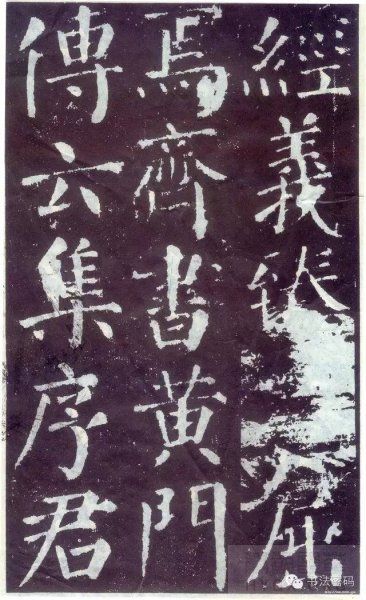 經義臻屈
焉齊書黃門
傳云集序君
书法密码